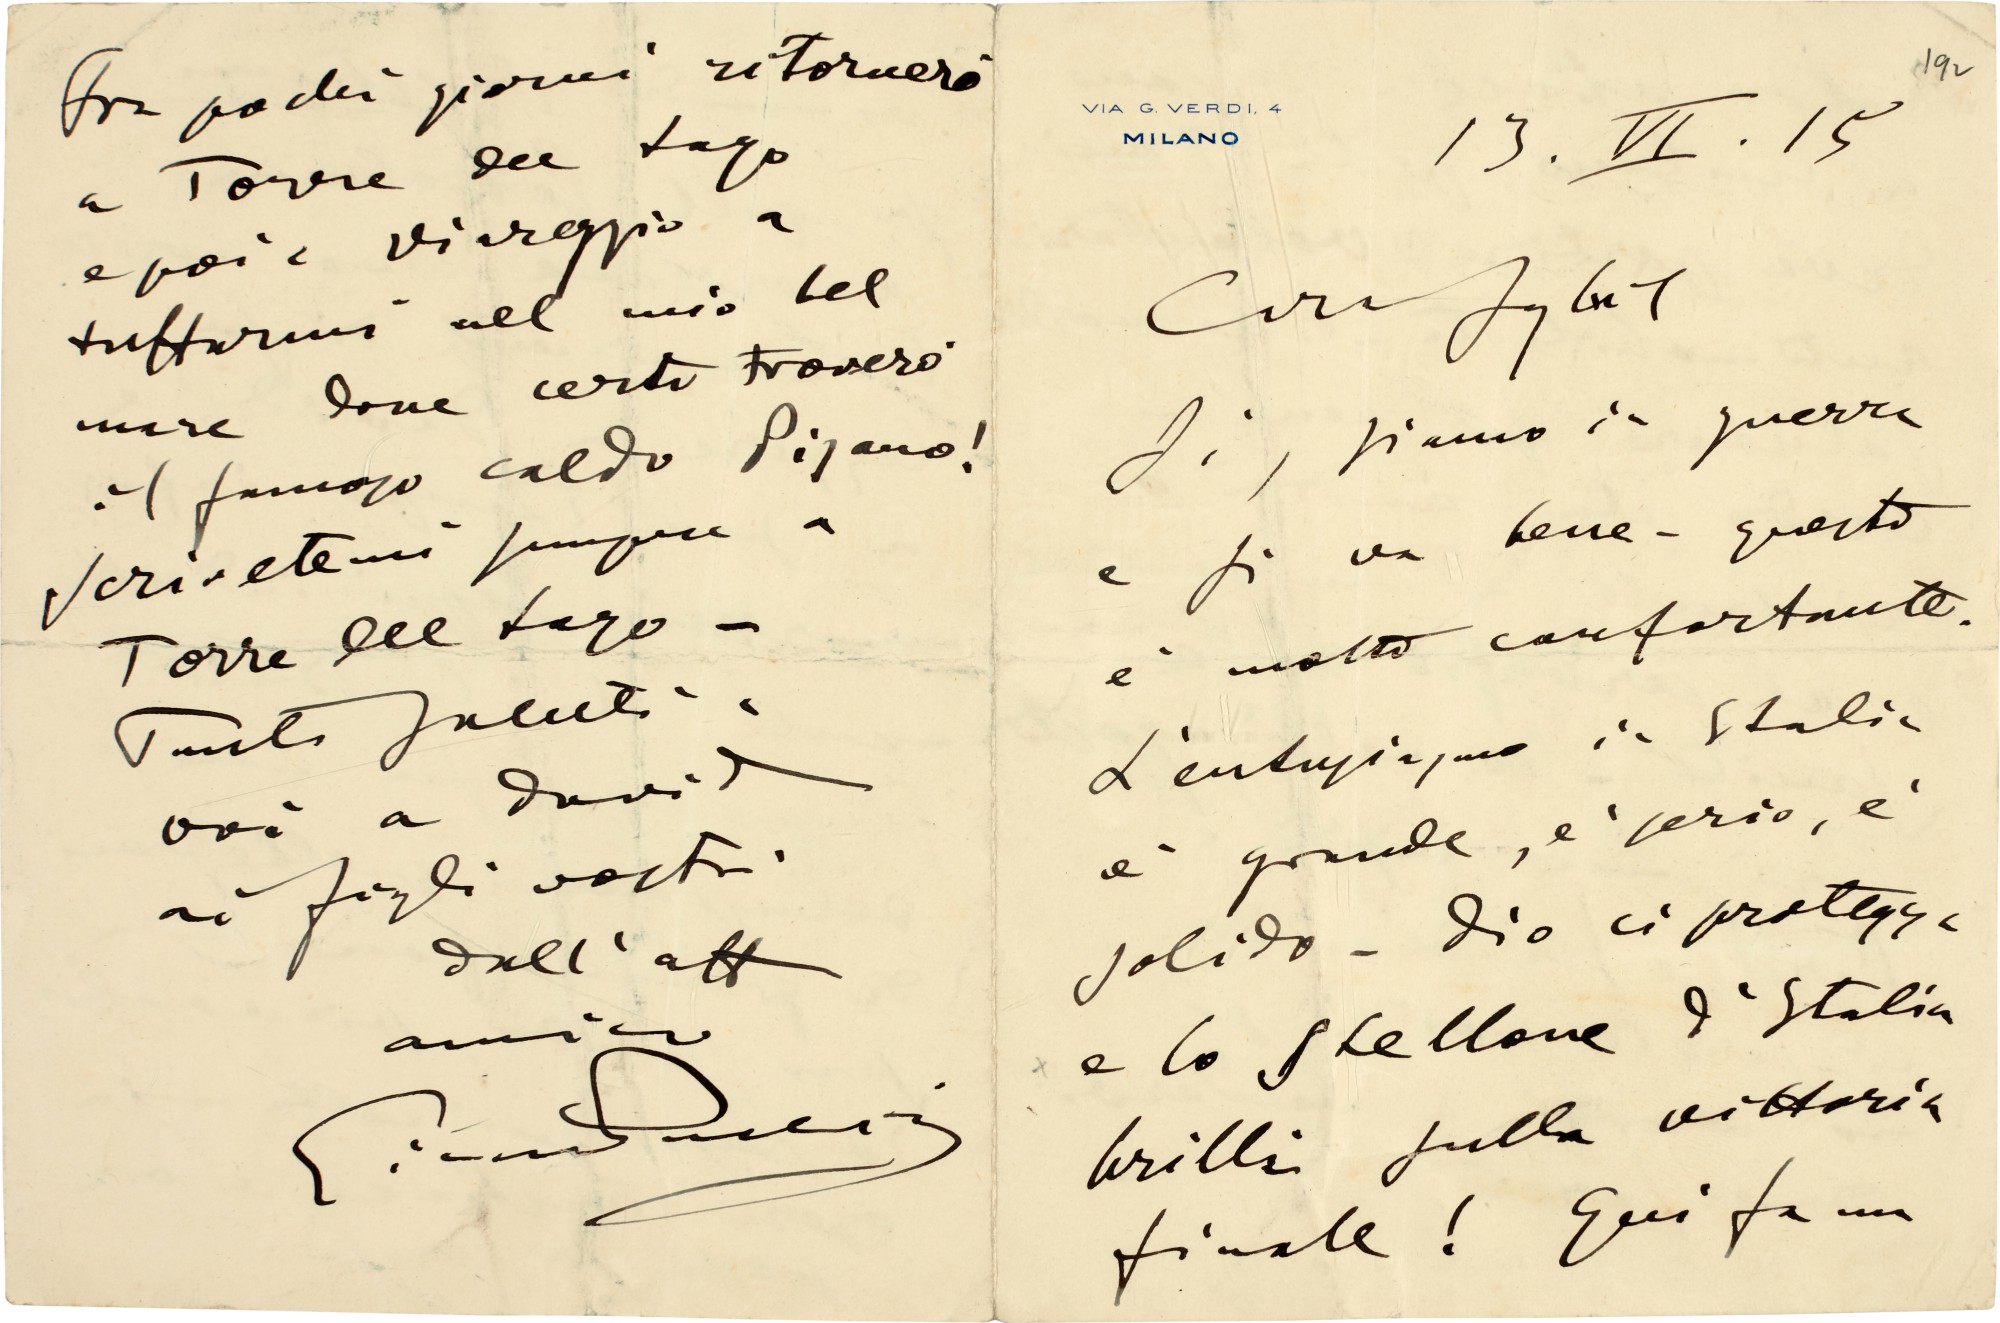 192
VIA G. VERDI, 4
MILANO
13. VI. 15
Cara Sybil
Si, siamo in guerra
e si va bene - questo
è molto confortante.
L'entusiasmo in Italia
è grande, è serio, è
solido - Dio ci protegga
e lo Stellone d'Italia
brilli sulla vittoria
finale! Qui fa un
fra pochi giorni ritornerò
a Torre del Lago
e poi a Viareggio a
tuffarmi nel mio bel
mare dove certo troverò
il famoso caldo Pisano!
Scrivetemi sempre a
Torre del Lago -
Tanti saluti a
voi a David
ai figli vostri
dall'aff
amico
Giacomo Puccini